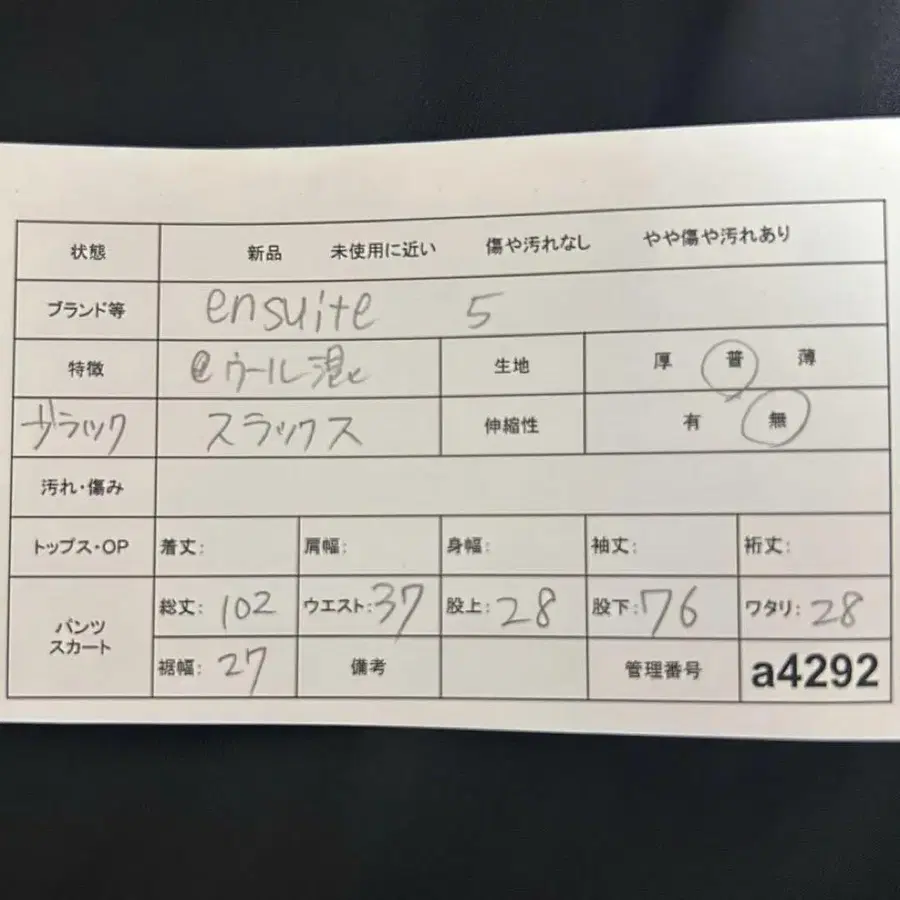 状態 新品 未使用に近い 傷や汚れなし やや傷や汚れあり
ブランド等 ensuite 5
特徴 ウール混 生地 厚 普 薄
ブラック スラックス 伸縮性 有 無
汚れ・傷み
トップス・OP 着丈: 肩幅: 身幅: 袖丈: 裄丈:
パンツ スカート 総丈: 102 ウエスト: 37 股上: 28 股下: 76 ワタリ: 28
裾幅: 27 備考 管理番号 a4292